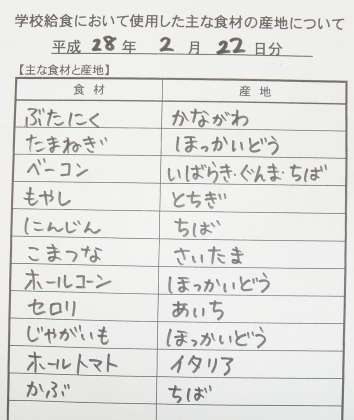 学校給食において使用した主な食材の産地について
平成 28 年 2 月 22 日分
【主な食材と産地】
食材 産地
ぶたにく かながわ
たまねぎ ほっかいどう
ベーコン いばらき・ぐんま・ちば
もやし とちぎ
にんじん ちば
こまつな さいたま
ホールコーン ほっかいどう
セロリ あいち
じゃがいも ほっかいどう
ホールトマト イタリア
かぶ ちば